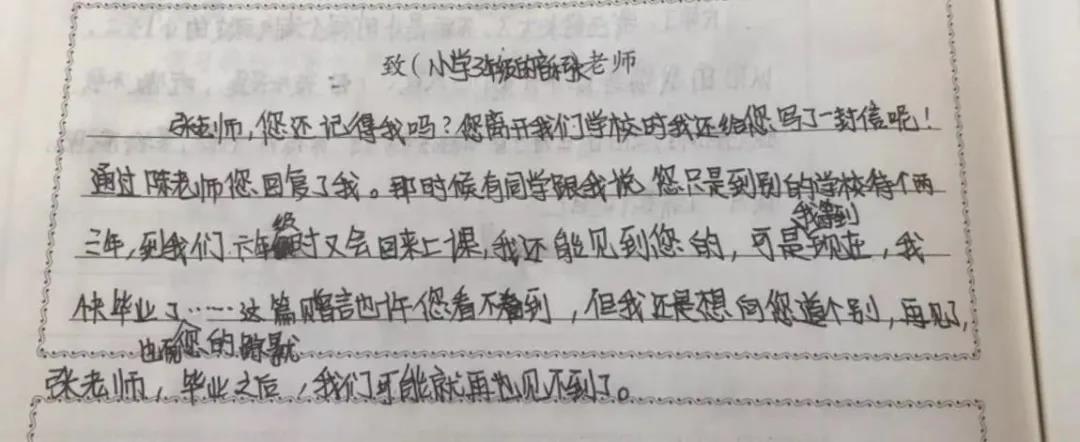 致(小学3年级的音乐张老师
张老师,您还记得我吗?您离开我们学校时我还给您写了一封信呢!
通过陈老师您回复了我。那时候有同学跟我说,您只是到别的学校待个两
三年,到我们六年级时又会回来上课,我还能见到您的,可是我等到现在,我
快毕业了……这篇赠言也许您看不到,但我还是想向您道个别,再见了,
也有您的
张老师,毕业之后,我们可能就再也见不到了。